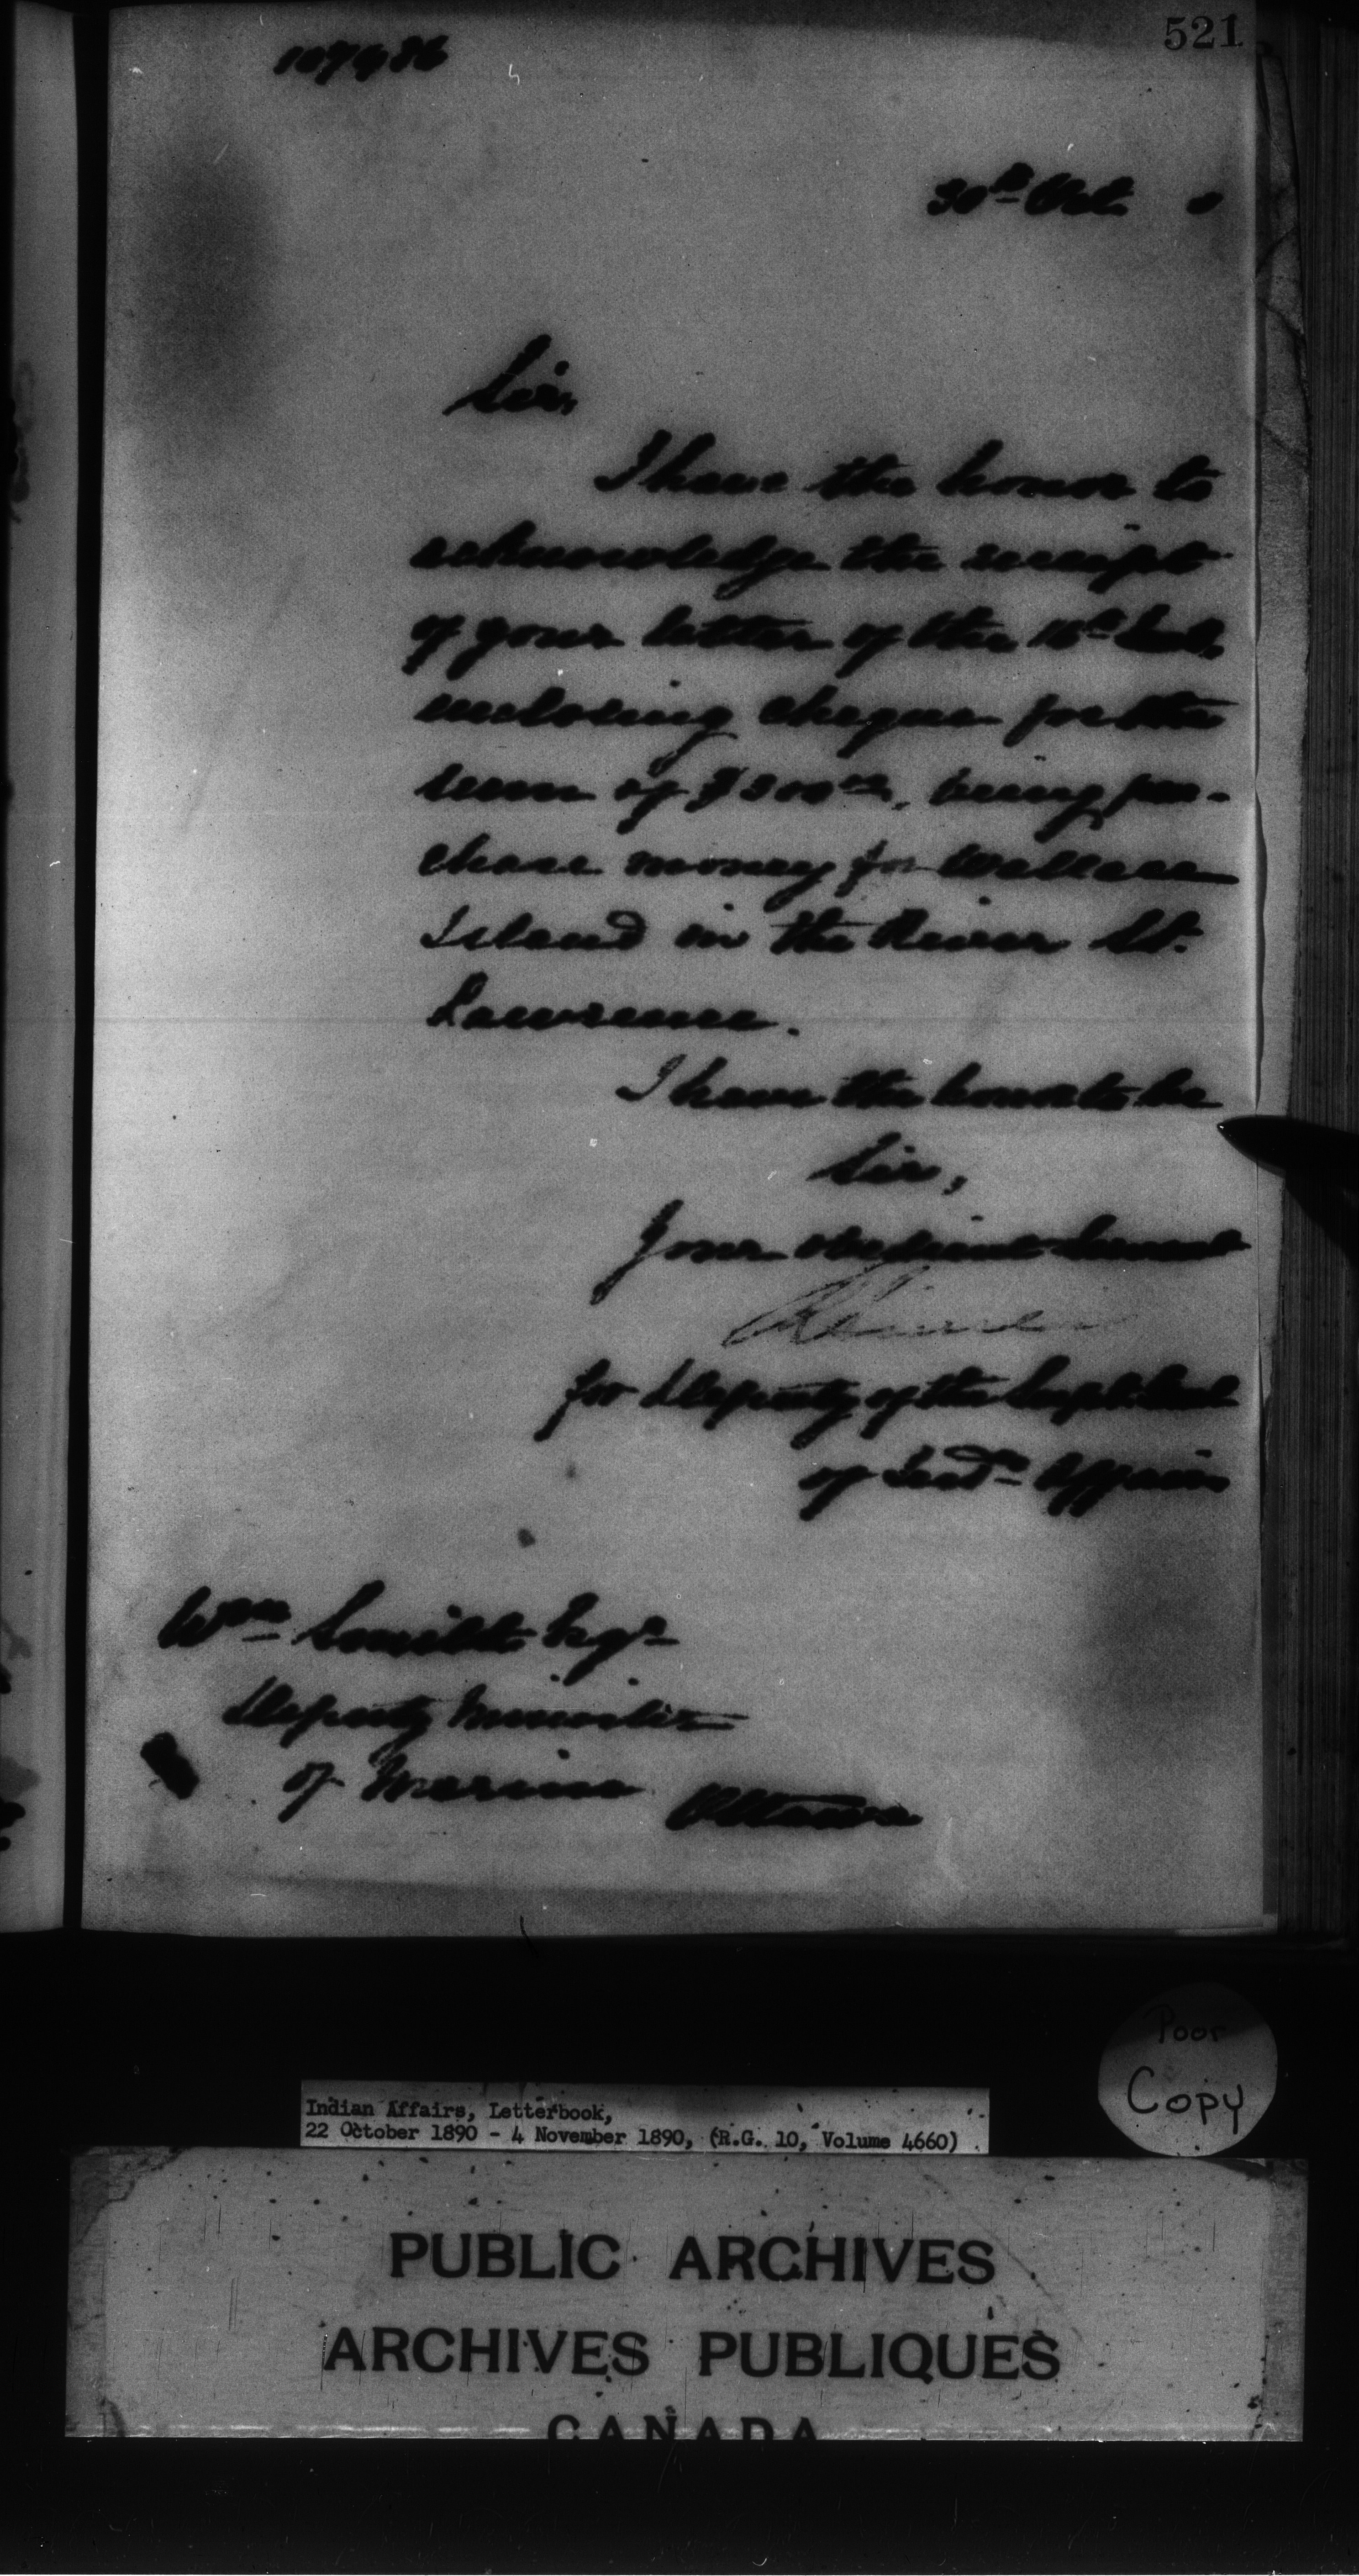 521
30th Oct. 0
Sir,
I have the honor to
acknowledge the receipt
of your letter of the 16th Inst.
enclosing cheque for the
sum of $300 00, being pur-
chase money for Wallace
Island in the River St.
Lawrence.
I have the honor to be
Sir,
Your obedient Servant
for Deputy of the Supt. Genl
of Indn Affairs
Wm Smith Esqr
Deputy Minister
of Marine Ottawa
Poor
Copy
Indian Affairs, Letterbook,
22 October 1890 - 4 November 1890, (R.G. 10, Volume 4660)
PUBLIC ARCHIVES
ARCHIVES PUBLIQUES
CANADA